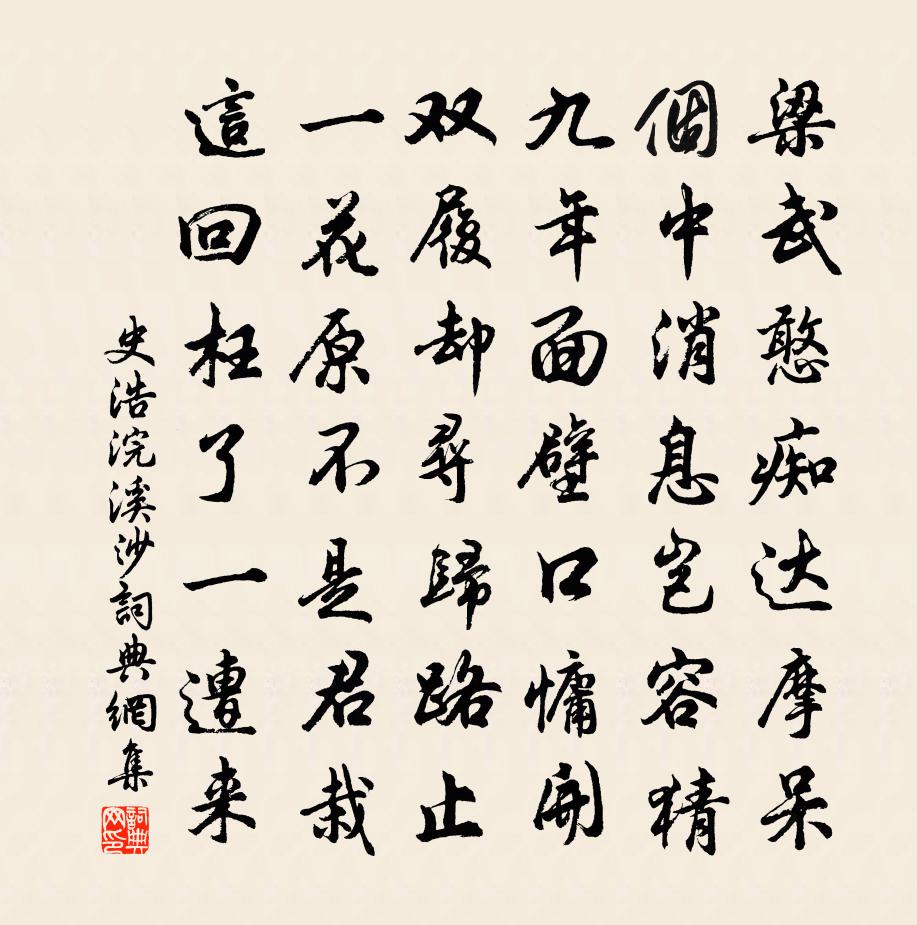 梁武憨痴达摩呆
個中消息岂容猜
九年面壁口慵開
双履却尋歸路止
一花原不是君栽
這回枉了一遭来
史浩浣溪沙詞典網集
詞典网印